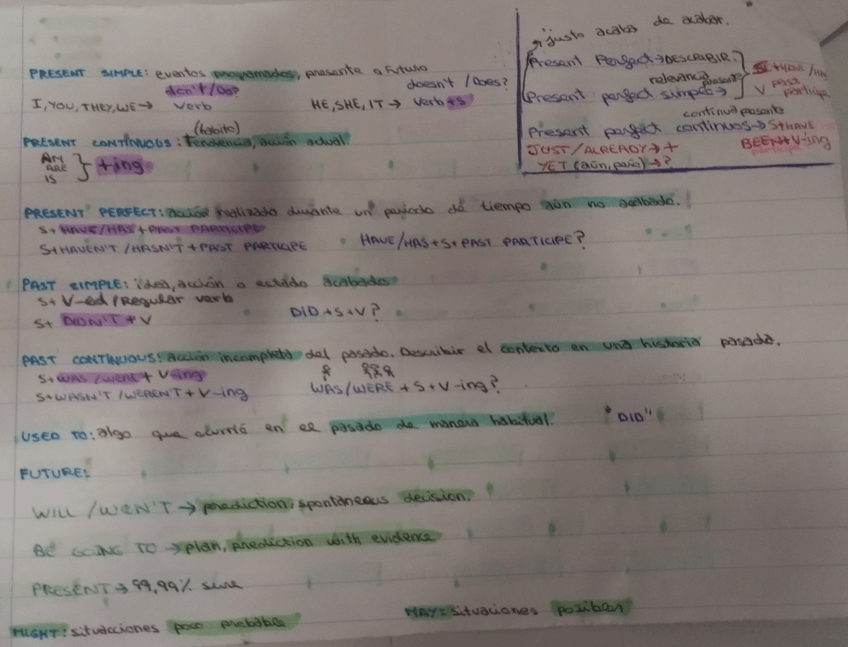 PRESENT SIMPLE: eventos programados, presente o futuro
don't /Do? doesn't /Does?
I, YOU, THEY, WE → verb HE, SHE, IT → verb+s
(habito)
PRESENT CONTINUOUS: Tendencia, acción actual
AM
ARE } +ing
IS
PRESENT PERFECT: acción realizado durante un periodo de tiempo aún no acabado.
S+HAVE/HAS+PAST PARTICIPE
S+HAVEN'T /HASN'T+PAST PARTICIPE HAVE/HAS+S+PAST PARTICIPE?
PAST SIMPLE: idea, acción o estado acabados
S+V-ed/Regular verb
S+ DIDN'T+V DID+S+V?
PAST CONTINUOUS: acción incompleta del pasado. Describir el contexto en una historia pasada.
S+WAS/were+V-ing
S+WASN'T /WEREN'T+V-ing WAS/WERE+S+V-ing?
USED TO: algo que ocurrió en el pasado de manera habitual. "DID"
FUTURE:
WILL /WON'T → prediction, spontaneous decision.
BE GOING TO → plan, prediction with evidence
PRESENT → 99,99% sure
MIGHT: situacciones poco probable MAY: situaciones posibles
justo acaba de acabar.
Present Perfect → DESCRIBIR.
relevancia presente
Present perfect simple → V past participe
continua presente
Present perfect continuos → S+HAVE
BEEN+V-ing
JUST/ALREADY → +
YET (aún, para) → ?